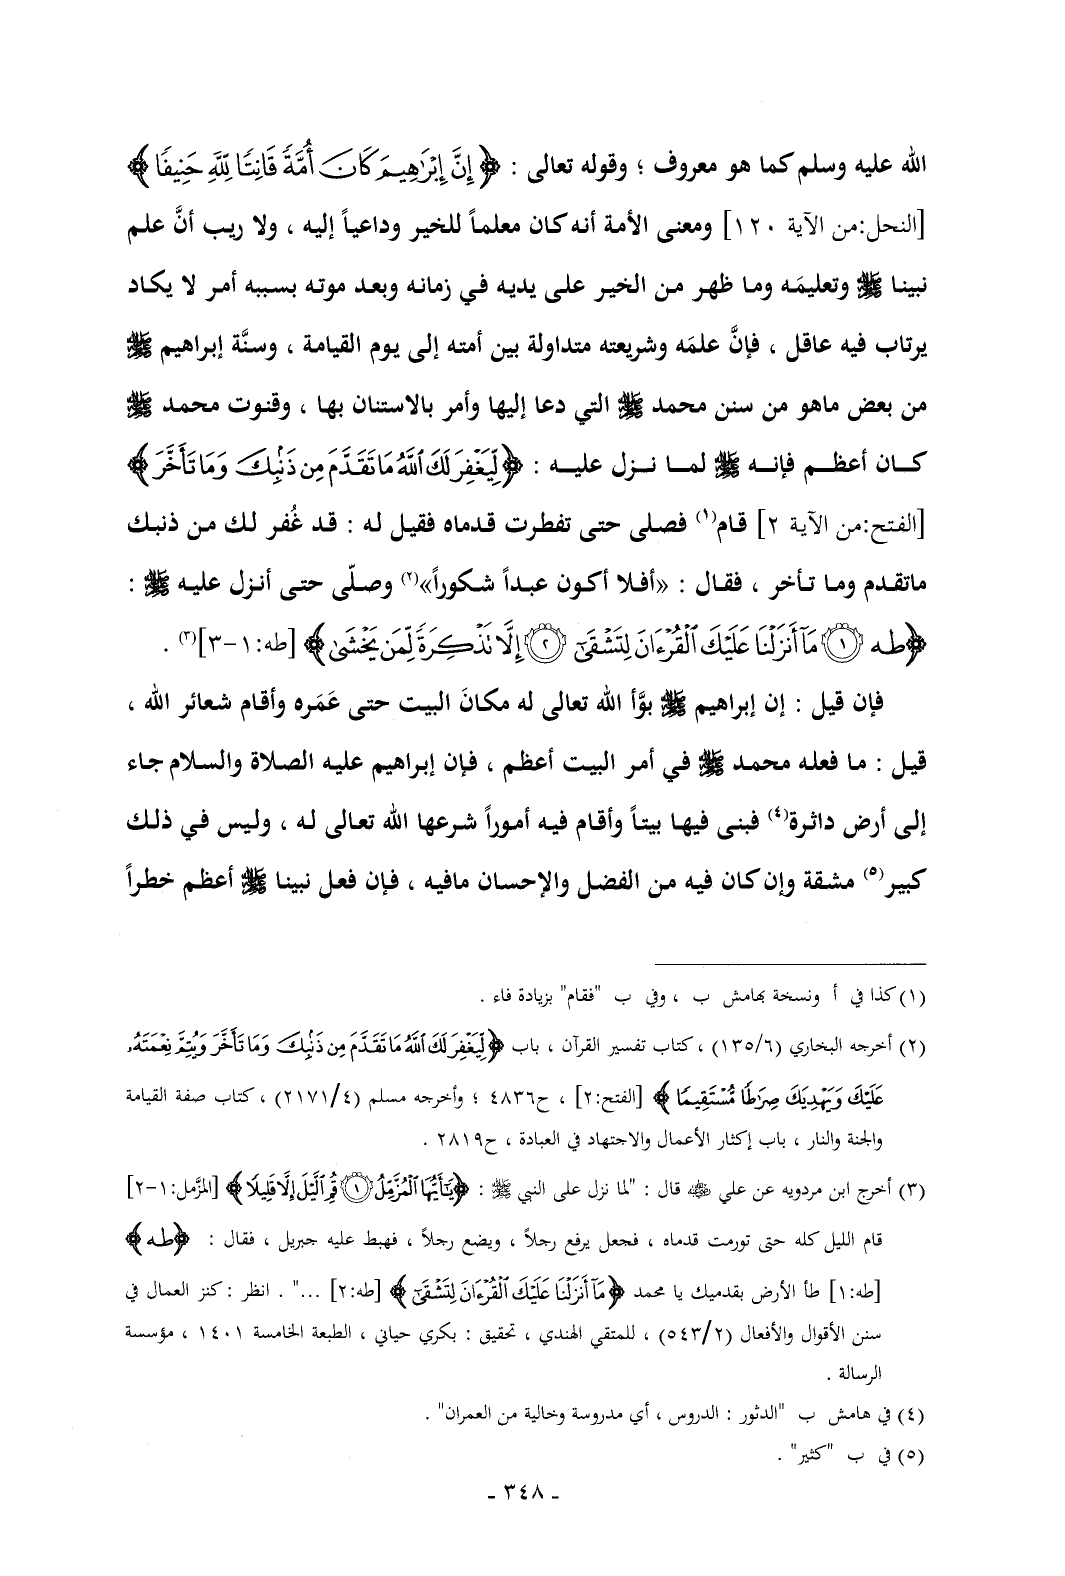 الله عليه وسلم كما هو معروف ؛ وقوله تعالى : ﴿ إِنَّ إِبْرَٰهِيمَ كَانَ أُمَّةً قَانِتًا لِّلَّهِ حَنِيفًا ﴾
[النحل:من الآية ١٢٠] ومعنى الأمة أنه كان معلماً للخير وداعياً إليه ، ولا ريب أنَّ علم
نبينا ﷺ وتعليمَه وما ظهر من الخير على يديه في زمانه وبعد موته بسببه أمر لا يكاد
يرتاب فيه عاقل ، فإنَّ علمَه وشريعته متداولة بين أمته إلى يوم القيامة ، وسنَّة إبراهيم ﷺ
من بعض ماهو من سنن محمد ﷺ التي دعا إليها وأمر بالاستنان بها ، وقنوت محمد ﷺ
كـان أعظـم فإنـه ﷺ لمـا نـزل عليـه : ﴿ لِّيَغْفِرَ لَكَ ٱللَّهُ مَا تَقَدَّمَ مِن ذَنۢبِكَ وَمَا تَأَخَّرَ ﴾
[الفتح:من الآية ٢] قام(١) فصلى حتى تفطرت قدماه فقيل له : قد غُفر لك من ذنبك
ماتقدم وما تأخر ، فقال : «أفلا أكون عبداً شكوراً»(٢) وصلّى حتى أنزل عليه ﷺ :
﴿ طه ١ مَآ أَنزَلْنَا عَلَيْكَ ٱلْقُرْءَانَ لِتَشْقَىٰٓ ٢ إِلَّا تَذْكِرَةً لِّمَن يَخْشَىٰ ﴾ [طه:١-٣](٣) .
فإن قيل : إن إبراهيم ﷺ بوَّأ الله تعالى له مكانَ البيت حتى عَمَره وأقام شعائر الله ،
قيل : ما فعله محمد ﷺ في أمر البيت أعظم ، فإن إبراهيم عليه الصلاة والسلام جاء
إلى أرض داثرة(٤) فبنى فيها بيتاً وأقام فيه أموراً شرعها الله تعالى له ، وليس في ذلك
كبير(٥) مشقة وإن كان فيه من الفضل والإحسان مافيه ، فإن فعل نبينا ﷺ أعظم خطراً
(١) كذا في أ ونسخة بهامش ب ، وفي ب "فقام" بزيادة فاء .
(٢) أخرجه البخاري (١٣٥/٦) ، كتاب تفسير القرآن ، باب ﴿ لِّيَغْفِرَ لَكَ ٱللَّهُ مَا تَقَدَّمَ مِن ذَنۢبِكَ وَمَا تَأَخَّرَ وَيُتِمَّ نِعْمَتَهُۥ
عَلَيْكَ وَيَهْدِيَكَ صِرَٰطًا مُّسْتَقِيمًا ﴾ [الفتح:٢] ، ح٤٨٣٦ ؛ وأخرجه مسلم (٢١٧١/٤) ، كتاب صفة القيامة
والجنة والنار ، باب إكثار الأعمال والاجتهاد في العبادة ، ح٢٨١٩ .
(٣) أخرج ابن مردويه عن علي ﵁ قال : "لما نزل على النبي ﷺ : ﴿ يَٰٓأَيُّهَا ٱلْمُزَّمِّلُ ١ قُمِ ٱلَّيْلَ إِلَّا قَلِيلًا ﴾ [المزَّمل:١-٢]
قام الليل كله حتى تورمت قدماه ، فجعل يرفع رجلاً ، ويضع رجلاً ، فهبط عليه جبريل ، فقال : ﴿ طه ﴾
[طه:١] طأ الأرض بقدميك يا محمد ﴿ مَآ أَنزَلْنَا عَلَيْكَ ٱلْقُرْءَانَ لِتَشْقَىٰٓ ﴾ [طه:٢] ..." . انظر : كنز العمال في
سنن الأقوال والأفعال (٥٤٣/٢) ، للمتقي الهندي ، تحقيق : بكري حياني ، الطبعة الخامسة ١٤٠١ ، مؤسسة
الرسالة .
(٤) في هامش ب "الدثور : الدروس ، أي مدروسة وخالية من العمران" .
(٥) في ب "كثير" .
- ٣٤٨ -